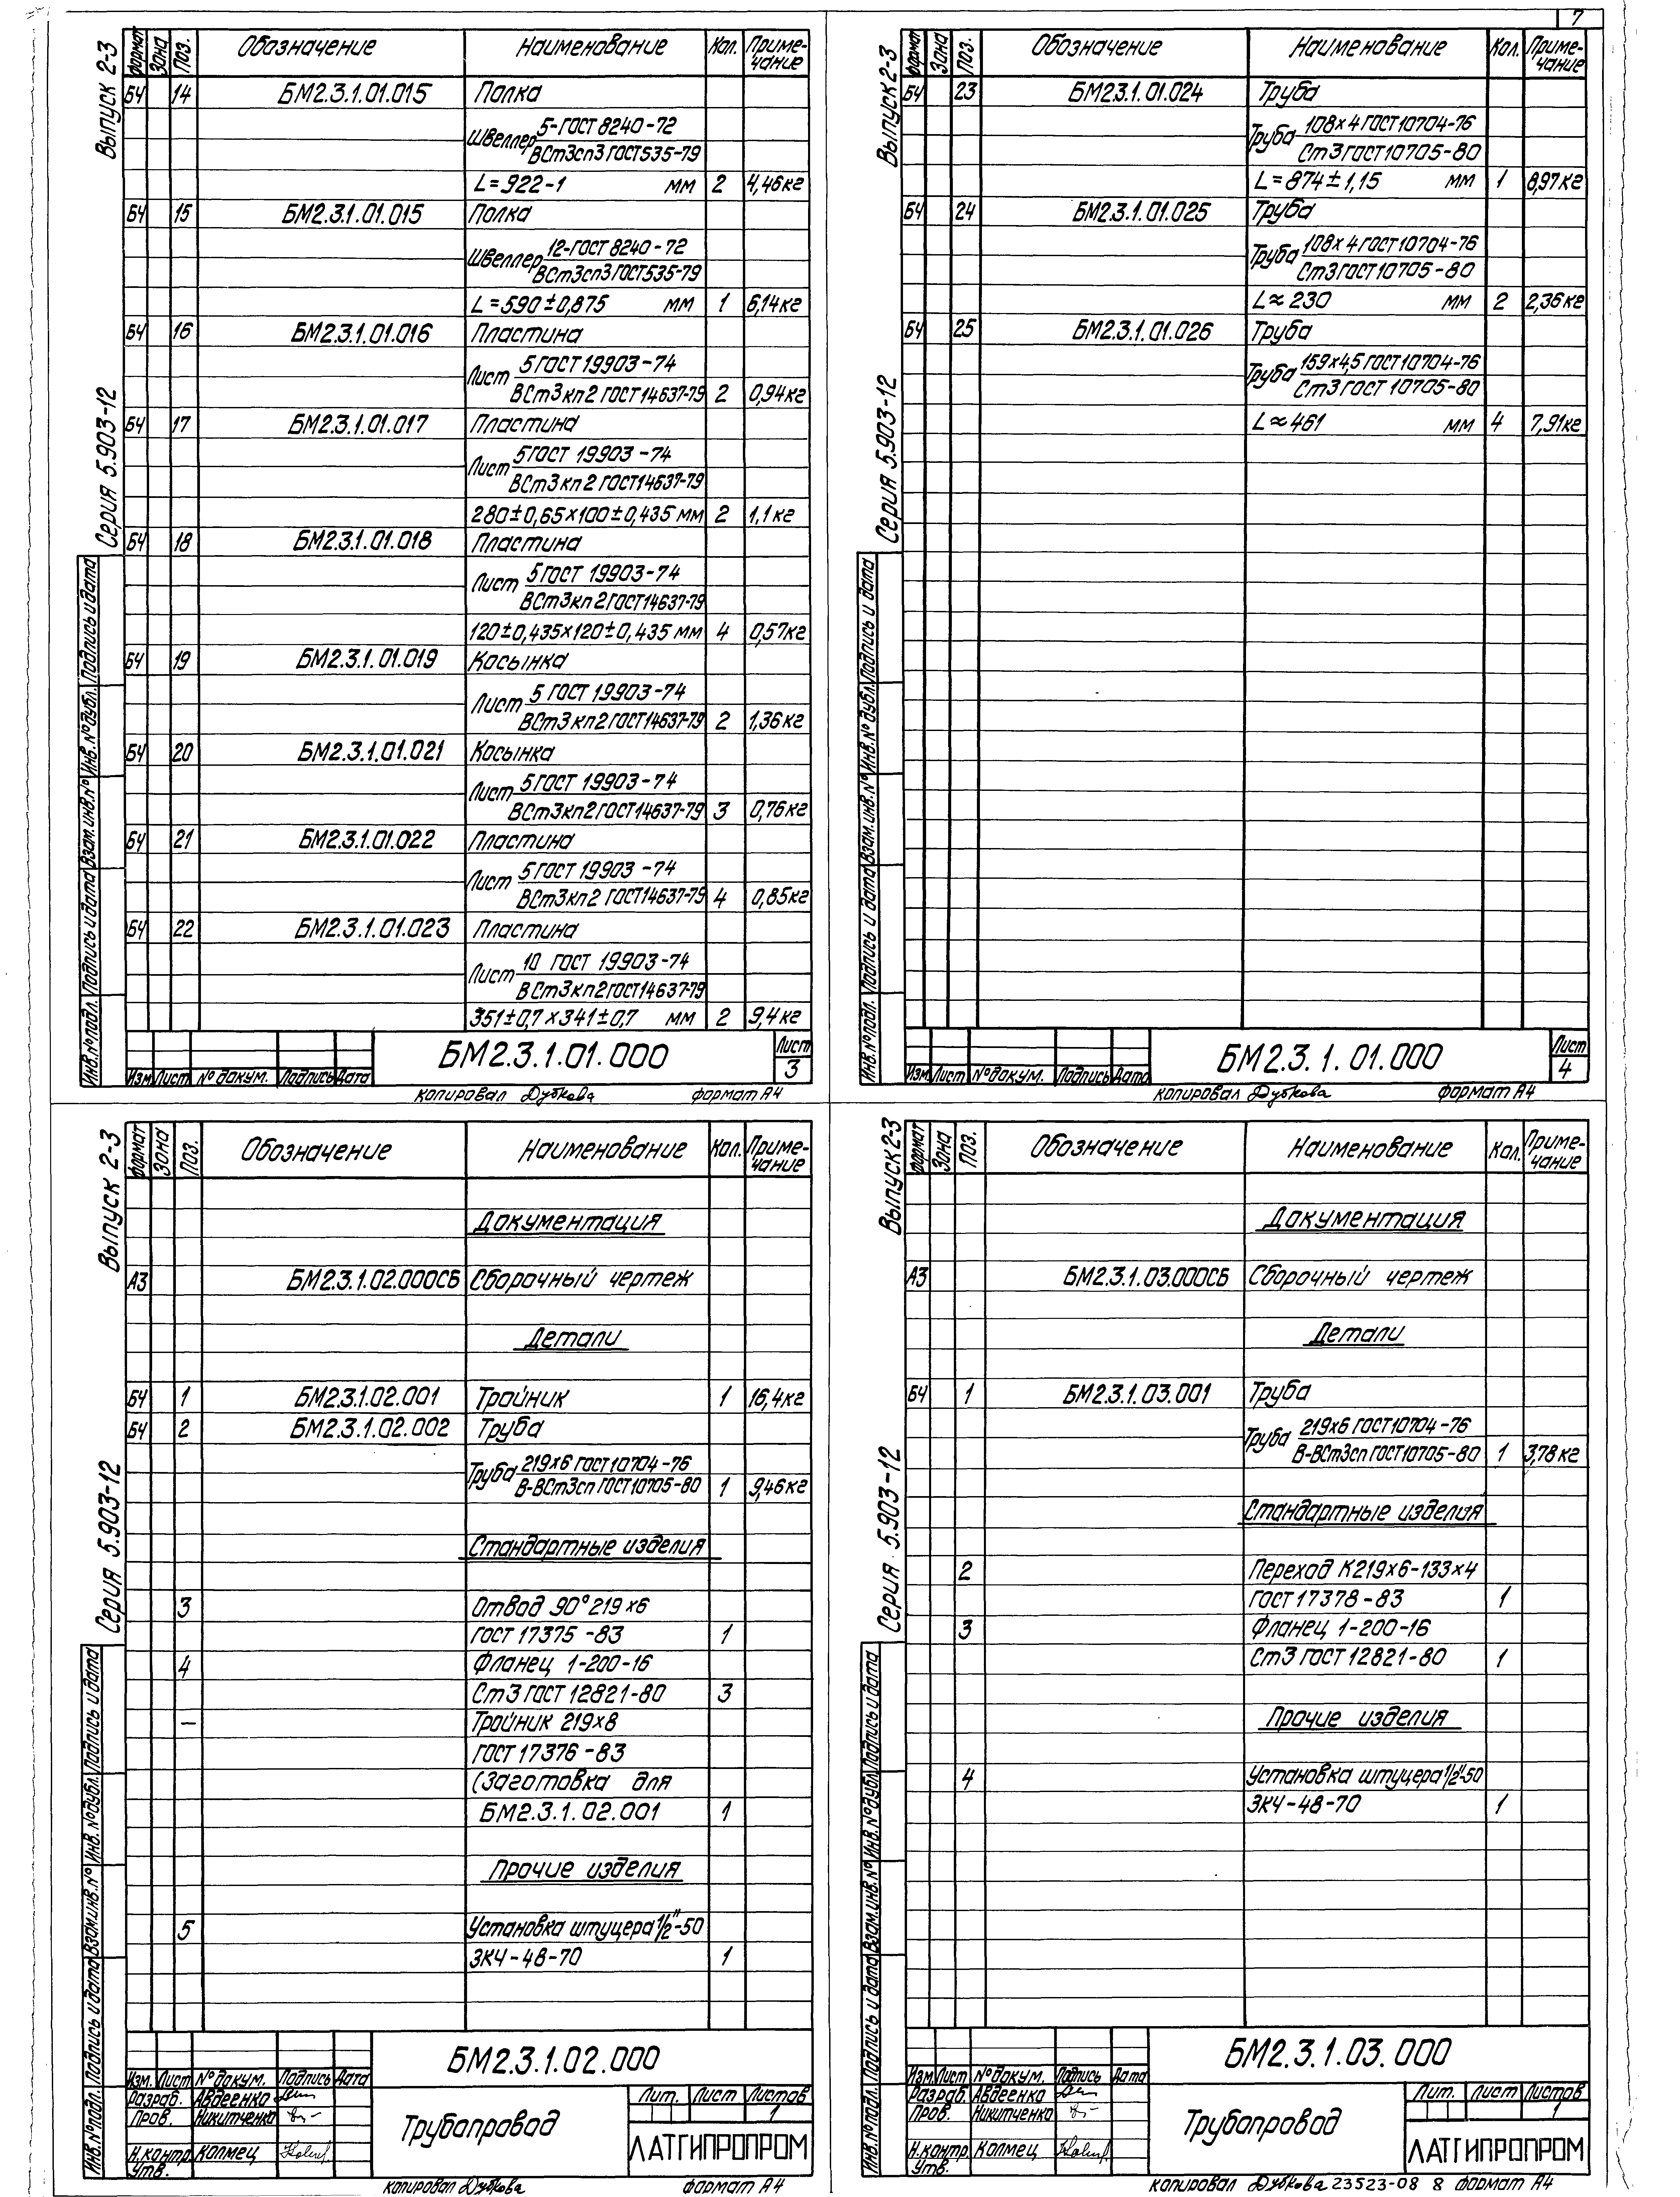 7
Выпуск 2-3
Серия 5.903-12
Формат Зона Поз. Обозначение Наименование Кол. Приме-
чание
БЧ 14 БМ2.3.1.01.015 Полка
Швеллер 5-ГОСТ 8240-72
ВСт3сп3 ГОСТ535-79
L=922-1 мм 2 4,46кг
БЧ 15 БМ2.3.1.01.015 Полка
Швеллер 12-ГОСТ 8240-72
ВСт3сп3 ГОСТ535-79
L=590±0,875 мм 1 6,14кг
БЧ 16 БМ2.3.1.01.016 Пластина
Лист 5ГОСТ 19903-74
ВСт3кп2 ГОСТ14637-79 2 0,94кг
БЧ 17 БМ2.3.1.01.017 Пластина
Лист 5ГОСТ 19903-74
ВСт3кп2 ГОСТ14637-79
280±0,65×100±0,435 мм 2 1,1кг
БЧ 18 БМ2.3.1.01.018 Пластина
Лист 5ГОСТ 19903-74
ВСт3кп2ГОСТ14637-79
120±0,435×120±0,435 мм 4 0,57кг
БЧ 19 БМ2.3.1.01.019 Косынка
Лист 5 ГОСТ 19903-74
ВСт3кп2ГОСТ14637-79 2 1,36кг
БЧ 20 БМ2.3.1.01.021 Косынка
Лист 5ГОСТ 19903-74
ВСт3кп2ГОСТ14637-79 3 0,76кг
БЧ 21 БМ2.3.1.01.022 Пластина
Лист 5ГОСТ 19903-74
ВСт3кп2 ГОСТ14637-79 4 0,85кг
БЧ 22 БМ2.3.1.01.023 Пластина
Лист 10 ГОСТ 19903-74
ВСт3кп2ГОСТ14637-79
351±0,7×341±0,7 мм 2 9,4кг
Инв.№подл. Подпись и дата Взам.инв.№ Инв.№дубл. Подпись и дата
Изм. Лист №докум. Подпись Дата
БМ2.3.1.01.000
Лист
3
копировал Дубкова формат А4
Выпуск 2-3
Серия 5.903-12
Формат Зона Поз. Обозначение Наименование Кол. Приме-
чание
БЧ 23 БМ2.3.1.01.024 Труба
Труба 108×4 ГОСТ10704-76
Ст3ГОСТ10705-80
L=874±1,15 мм 1 8,97кг
БЧ 24 БМ2.3.1.01.025 Труба
Труба 108×4 ГОСТ10704-76
Ст3ГОСТ10705-80
L≈230 мм 2 2,36кг
БЧ 25 БМ2.3.1.01.026 Труба
Труба 159×4,5 ГОСТ10704-76
Ст3ГОСТ 10705-80
L≈461 мм 4 7,91кг
Инв.№подл. Подпись и дата Взам.инв.№ Инв.№дубл. Подпись и дата
Изм. Лист №докум. Подпись Дата
БМ2.3.1.01.000
Лист
4
копировал Дубкова формат А4
Выпуск 2-3
Серия 5.903-12
Формат Зона Поз. Обозначение Наименование Кол. Приме-
чание
Документация
А3 БМ2.3.1.02.000СБ Сборочный чертеж
Детали
БЧ 1 БМ2.3.1.02.001 Тройник 1 16,4кг
БЧ 2 БМ2.3.1.02.002 Труба
Труба 219×6 ГОСТ10704-76
В-ВСт3сп ГОСТ10705-80 1 9,46кг
Стандартные изделия
3 Отвод 90°219×6
ГОСТ 17375-83 1
4 Фланец 1-200-16
Ст3 ГОСТ 12821-80 3
— Тройник 219×8
ГОСТ 17376-83
(Заготовка для
БМ2.3.1.02.001 1
Прочие изделия
5 Установка штуцера 1/2"-50
ЗКЧ-48-70 1
Инв.№подл. Подпись и дата Взам.инв.№ Инв.№дубл. Подпись и дата
БМ2.3.1.02.000
Изм. Лист №докум. Подпись Дата
Разраб. Авдеенко
Пров. Никитченко
Н.контр. Колмец
Утв.
Трубопровод
Лит. Лист Листов
1
ЛАТГИПРОПРОМ
копировал Дубкова формат А4
Выпуск 2-3
Серия 5.903-12
Формат Зона Поз. Обозначение Наименование Кол. Приме-
чание
Документация
А3 БМ2.3.1.03.000СБ Сборочный чертеж
Детали
БЧ 1 БМ2.3.1.03.001 Труба
Труба 219×6 ГОСТ10704-76
В-ВСт3сп ГОСТ10705-80 1 3,78кг
Стандартные изделия
2 Переход К219×6-133×4
ГОСТ 17378-83 1
3 Фланец 1-200-16
Ст3 ГОСТ 12821-80 1
Прочие изделия
4 Установка штуцера 1/2"-50
ЗКЧ-48-70 1
Инв.№подл. Подпись и дата Взам.инв.№ Инв.№дубл. Подпись и дата
БМ2.3.1.03.000
Изм. Лист №докум. Подпись Дата
Разраб. Авдеенко
Пров. Никитченко
Н.контр. Колмец
Утв.
Трубопровод
Лит. Лист Листов
1
ЛАТГИПРОПРОМ
копировал Дубкова 23523-08 8 формат А4